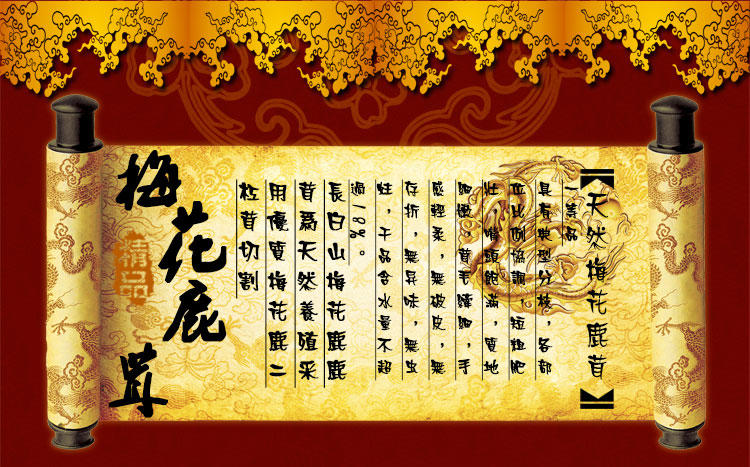 【天然梅花鹿茸】
一等品
具有典型分枝，各部
位比例協調，短粗肥
壯，嘴頭飽滿，質地
細嫩，茸毛纖細，手
感輕柔，無破皮，無
存折，無異味，無虫
蛀，干品含水量不超
過18%。
長白山梅花鹿鹿
茸爲天然養殖采
用優質梅花鹿二
杠茸切割
梅花鹿茸
精品